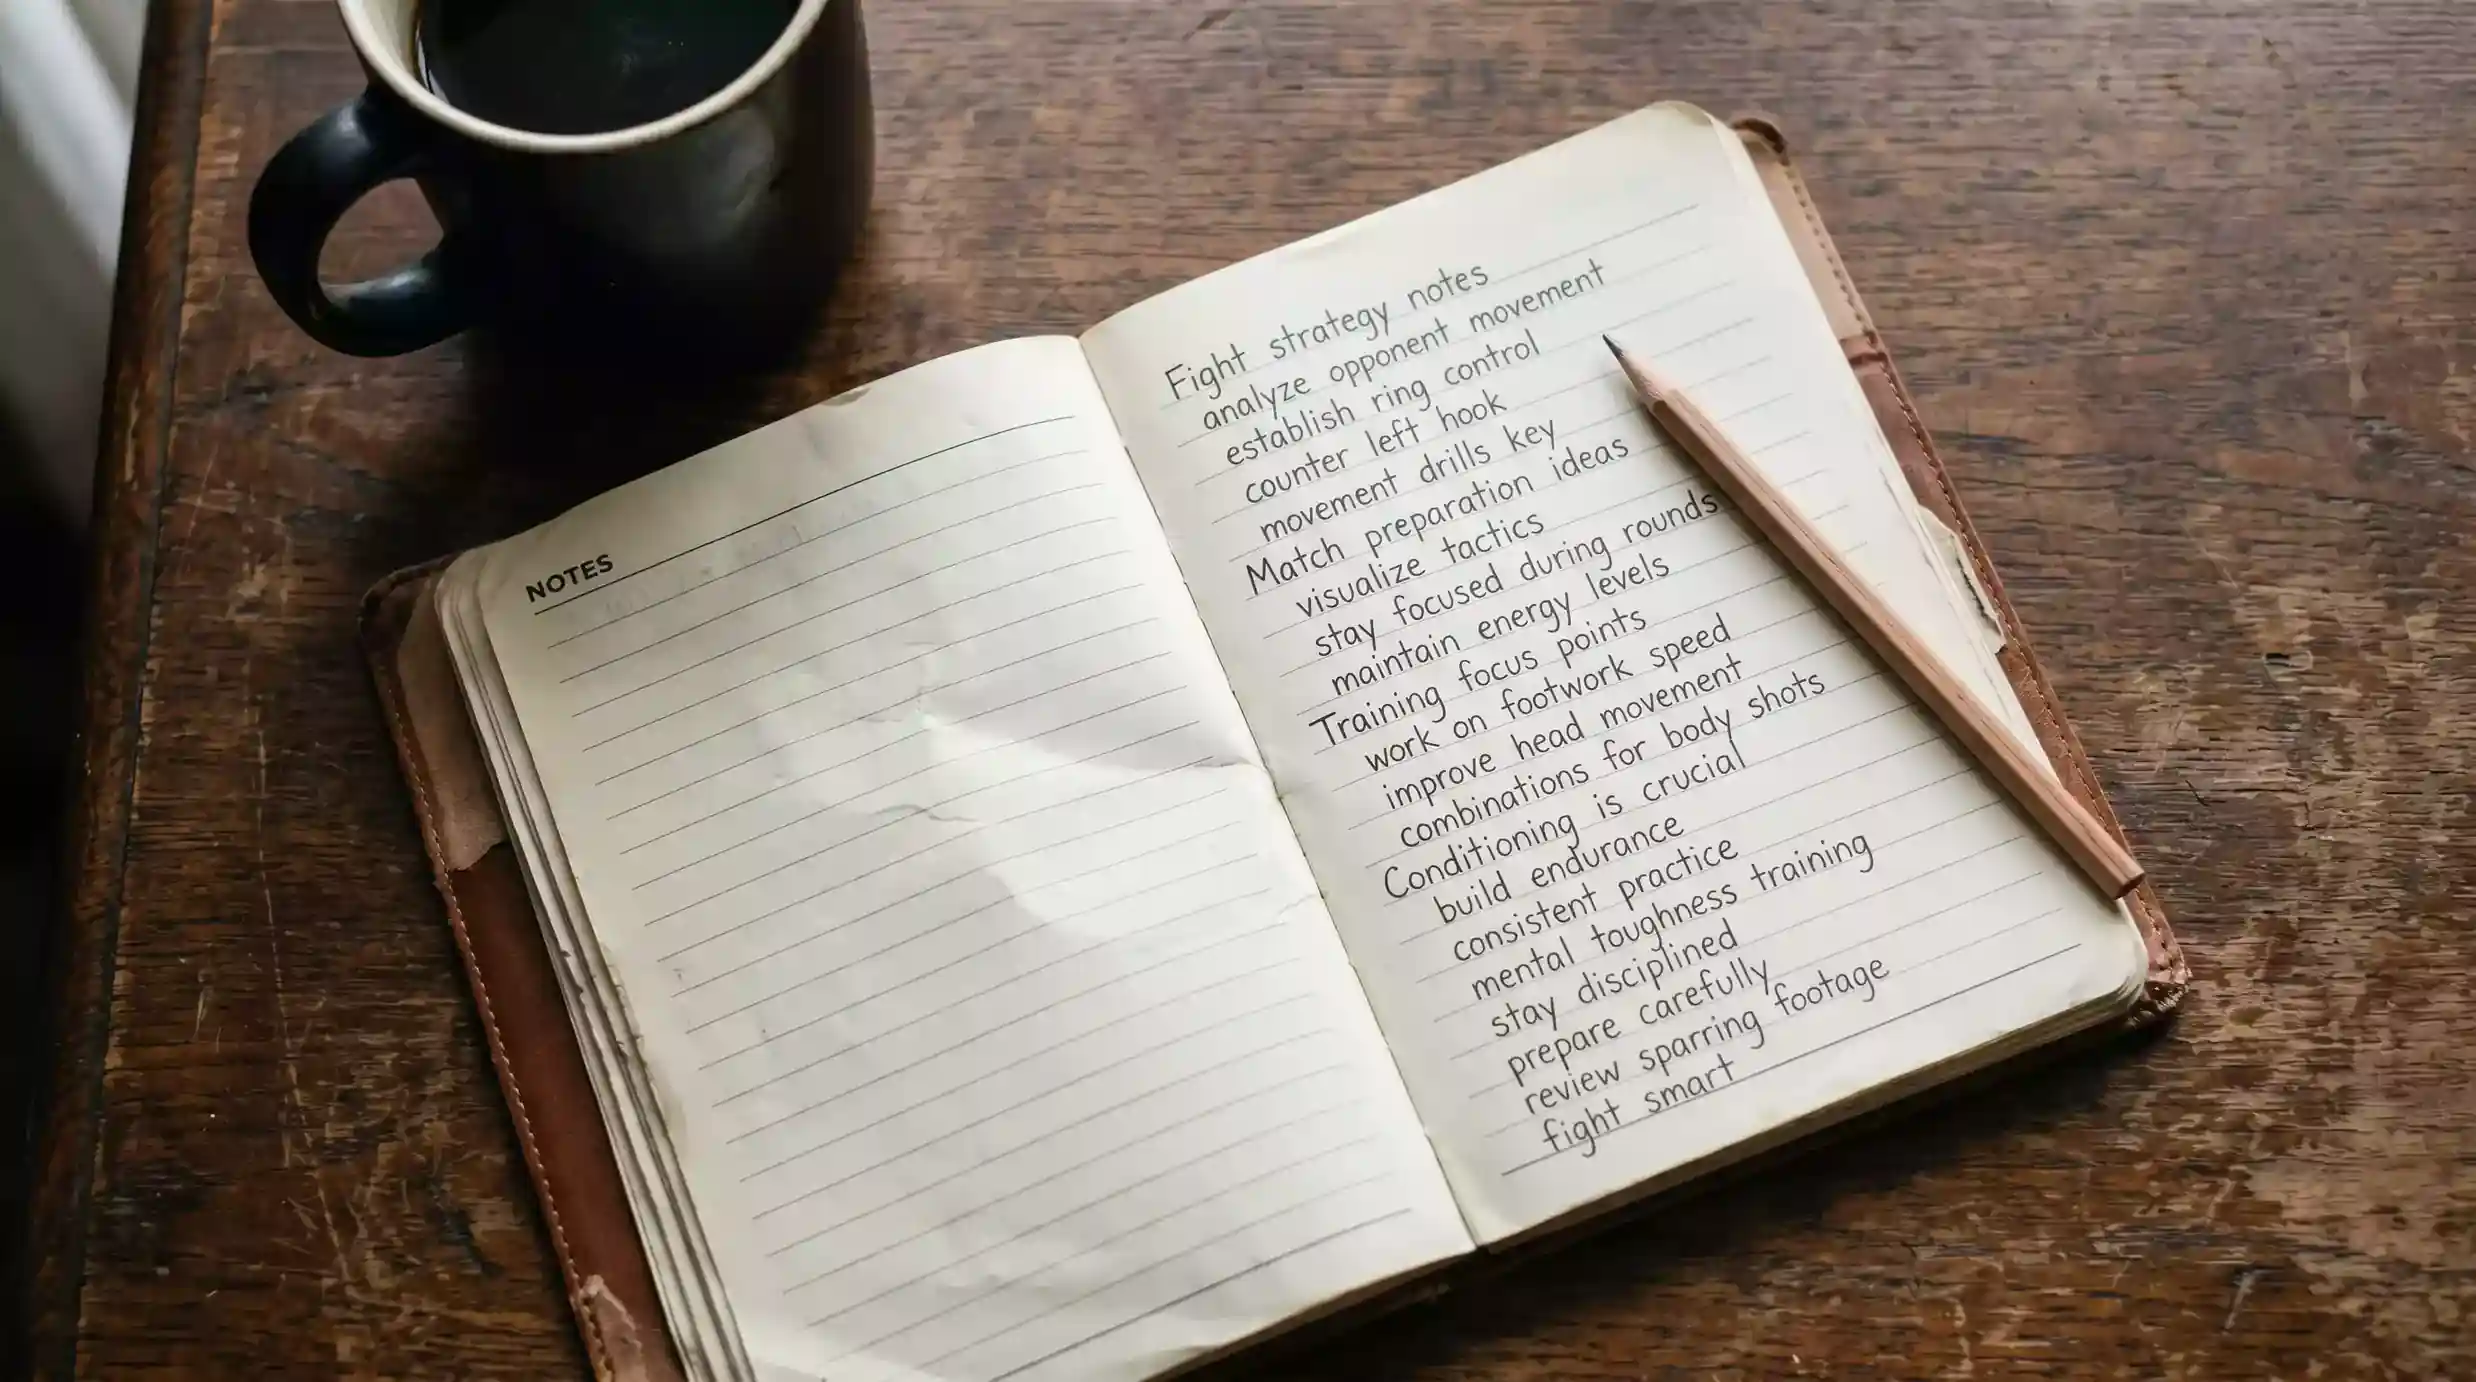 NOTES
Fight strategy notes
analyze opponent movement
establish ring control
counter left hook
movement drills key
Match preparation ideas
visualize tactics
stay focused during rounds
maintain energy levels
Training focus points
work on footwork speed
improve head movement
combinations for body shots
Conditioning is crucial
build endurance
consistent practice
mental toughness training
stay disciplined
prepare carefully
review sparring footage
fight smart